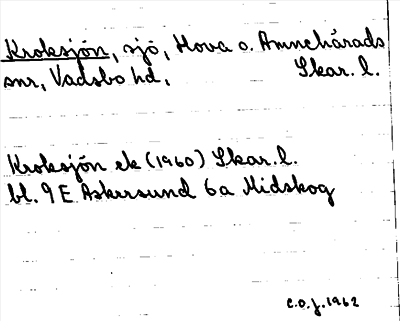 Kroksjön, sjö, Hova o. Amnehärads
snr, Vadsbo hd, Skar. l.
Kroksjön ek (1960) Skar. l.
bl. 9 E Askersund 6a Midskog
C.O.J. 1962